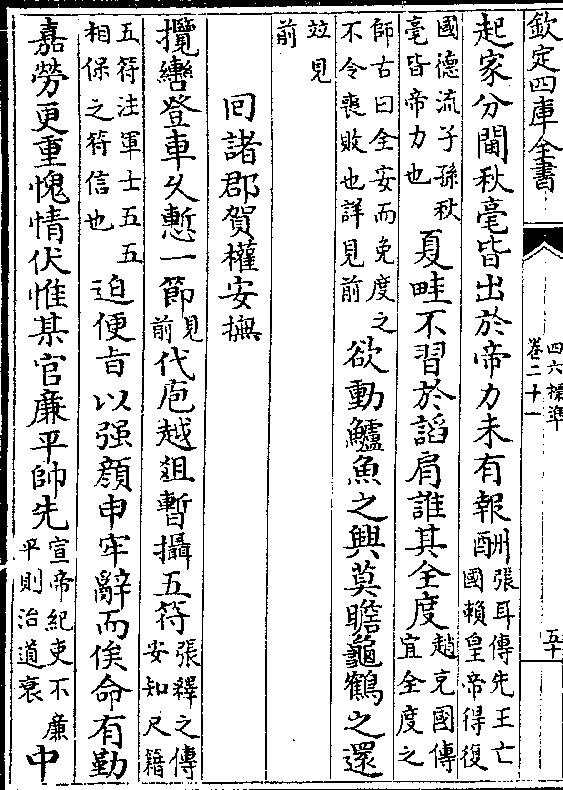 欽定四庫全書
四六標準
卷二十一
五十
起家分閫秋毫皆出於帝力未有報酬張耳傳先王亡國賴皇帝得復
國德流子孫秋毫皆帝力也夏畦不習於謟肩誰其全度趙充國傳宜全度之
師古曰全安而免度之不令喪敗也詳見前欲動鱸魚之興莫瞻龜鶴之還
竝見前
回諸郡賀權安撫
攬轡登車久慙一節見前代庖越俎暫攝五符張釋之傳安知尺籍
五符注軍士五五相保之符信也迫便㫖以强顔申牢辭而俟命有勤
嘉勞更重愧情伏惟某官廉平帥先宣帝紀吏不廉平則治道衰中